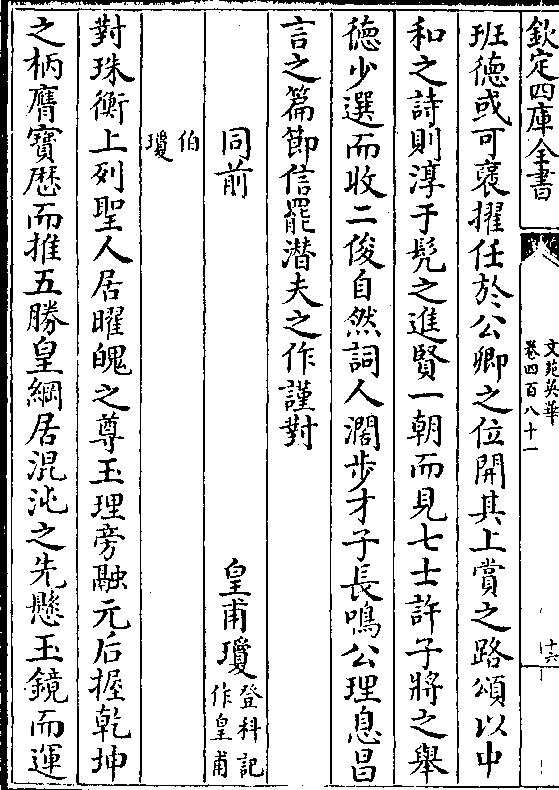 欽定四庫全書
文苑英華
卷四百八十一
十六
班徳或可襃擢任於公卿之位開其上賞之路頌以中
和之詩則淳于髠之進賢一朝而見七士許子將之舉
徳少選而收二俊自然詞人濶歩才子長鳴公理息昌
言之篇節信罷潜夫之作謹對
同前
皇甫瓊登科記
作皇甫
伯
瓊
對珠衡上列聖人居曜魄之尊玉理旁融元后握乾坤
之柄膺寳歴而推五勝皇綱居混沌之先懸玉鏡而運